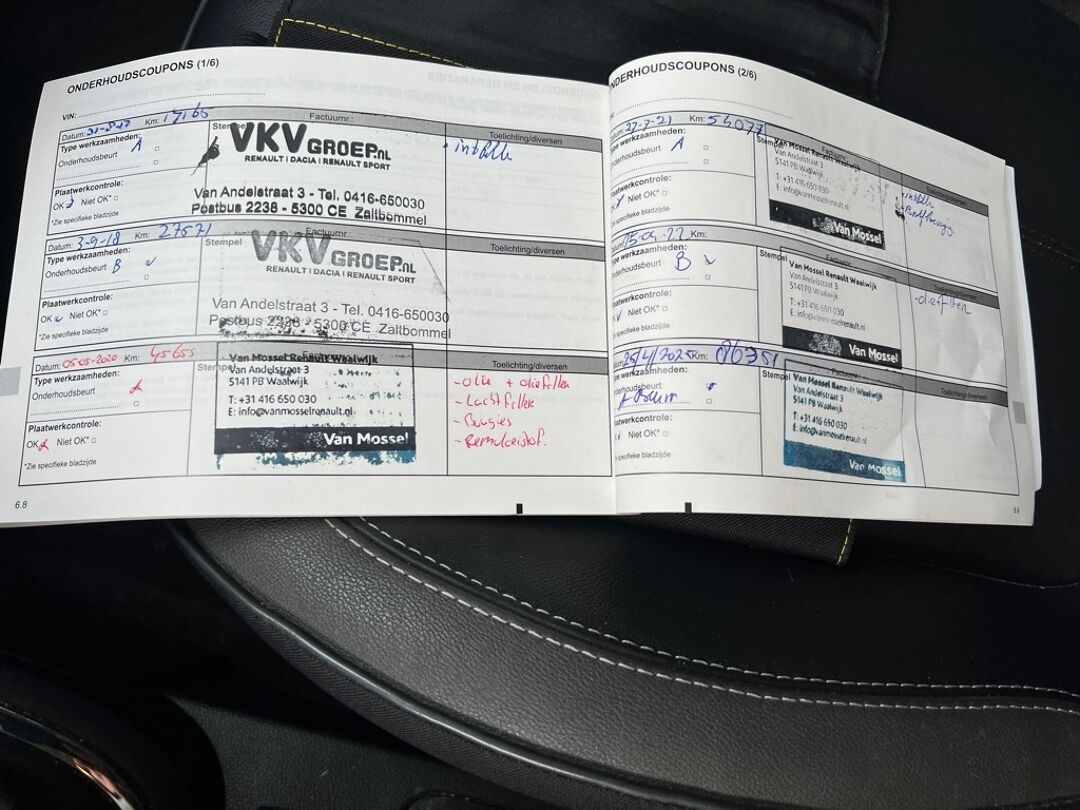 ONDERHOUDSCOUPONS (1/6)
VIN:
Datum: Km: 17165 Factuurnr.:
Type werkzaamheden: A
Onderhoudsbeurt
Plaatwerkcontrole:
OK Niet OK*
*Zie specifieke bladzijde
Stempel
VKV GROEP.NL
RENAULT | DACIA | RENAULT SPORT
Van Andelstraat 3 - Tel. 0416-650030
Postbus 2238 - 5300 CE Zaltbommel
Toelichting/diversen
Datum: 3-9-18 Km: 27571 Factuurnr.:
Type werkzaamheden:
Onderhoudsbeurt B
Plaatwerkcontrole:
OK Niet OK*
*Zie specifieke bladzijde
Stempel
VKV GROEP.NL
RENAULT | DACIA | RENAULT SPORT
Van Andelstraat 3 - Tel. 0416-650030
Postbus 2238 - 5300 CE Zaltbommel
Toelichting/diversen
Datum: 05-05-2020 Km: 45655 Factuurnr.:
Type werkzaamheden:
Onderhoudsbeurt
Plaatwerkcontrole:
OK Niet OK*
*Zie specifieke bladzijde
Stempel
Van Mossel Renault Waalwijk
Van Andelstraat 3
5141 PB Waalwijk
T: +31 416 650 030
E: info@vanmosselrenault.nl
Van Mossel
Toelichting/diversen
- olie + oliefilter
- Luchtfilter
- Bougies
- Remvloeistof.
6.8
ONDERHOUDSCOUPONS (2/6)
Datum: 27-7-21 Km: 54077 Factuurnr.:
Type werkzaamheden:
Onderhoudsbeurt A
Plaatwerkcontrole:
OK Niet OK*
*Zie specifieke bladzijde
Stempel
Van Mossel Renault Waalwijk
Van Andelstraat 3
5141 PB Waalwijk
T: +31 416 650 030
E: info@vanmosselrenault.nl
Van Mossel
Toelichting/diversen
Datum: 15-04-22 Km: Factuurnr.:
Type werkzaamheden:
Onderhoudsbeurt B
Plaatwerkcontrole:
OK Niet OK*
*Zie specifieke bladzijde
Stempel
Van Mossel Renault Waalwijk
Van Andelstraat 3
5141 PB Waalwijk
T: +31 416 650 030
E: info@vanmosselrenault.nl
Van Mossel
Toelichting/diversen
Datum: 25/4/2025 Km: Factuurnr.:
Type werkzaamheden:
Onderhoudsbeurt
Plaatwerkcontrole:
Niet OK*
Zie specifieke bladzijde
Stempel
Van Mossel Renault Waalwijk
Van Andelstraat 3
5141 PB Waalwijk
T: +31 416 650 030
E: info@vanmosselrenault.nl
Van Mossel
Toelichting/diversen